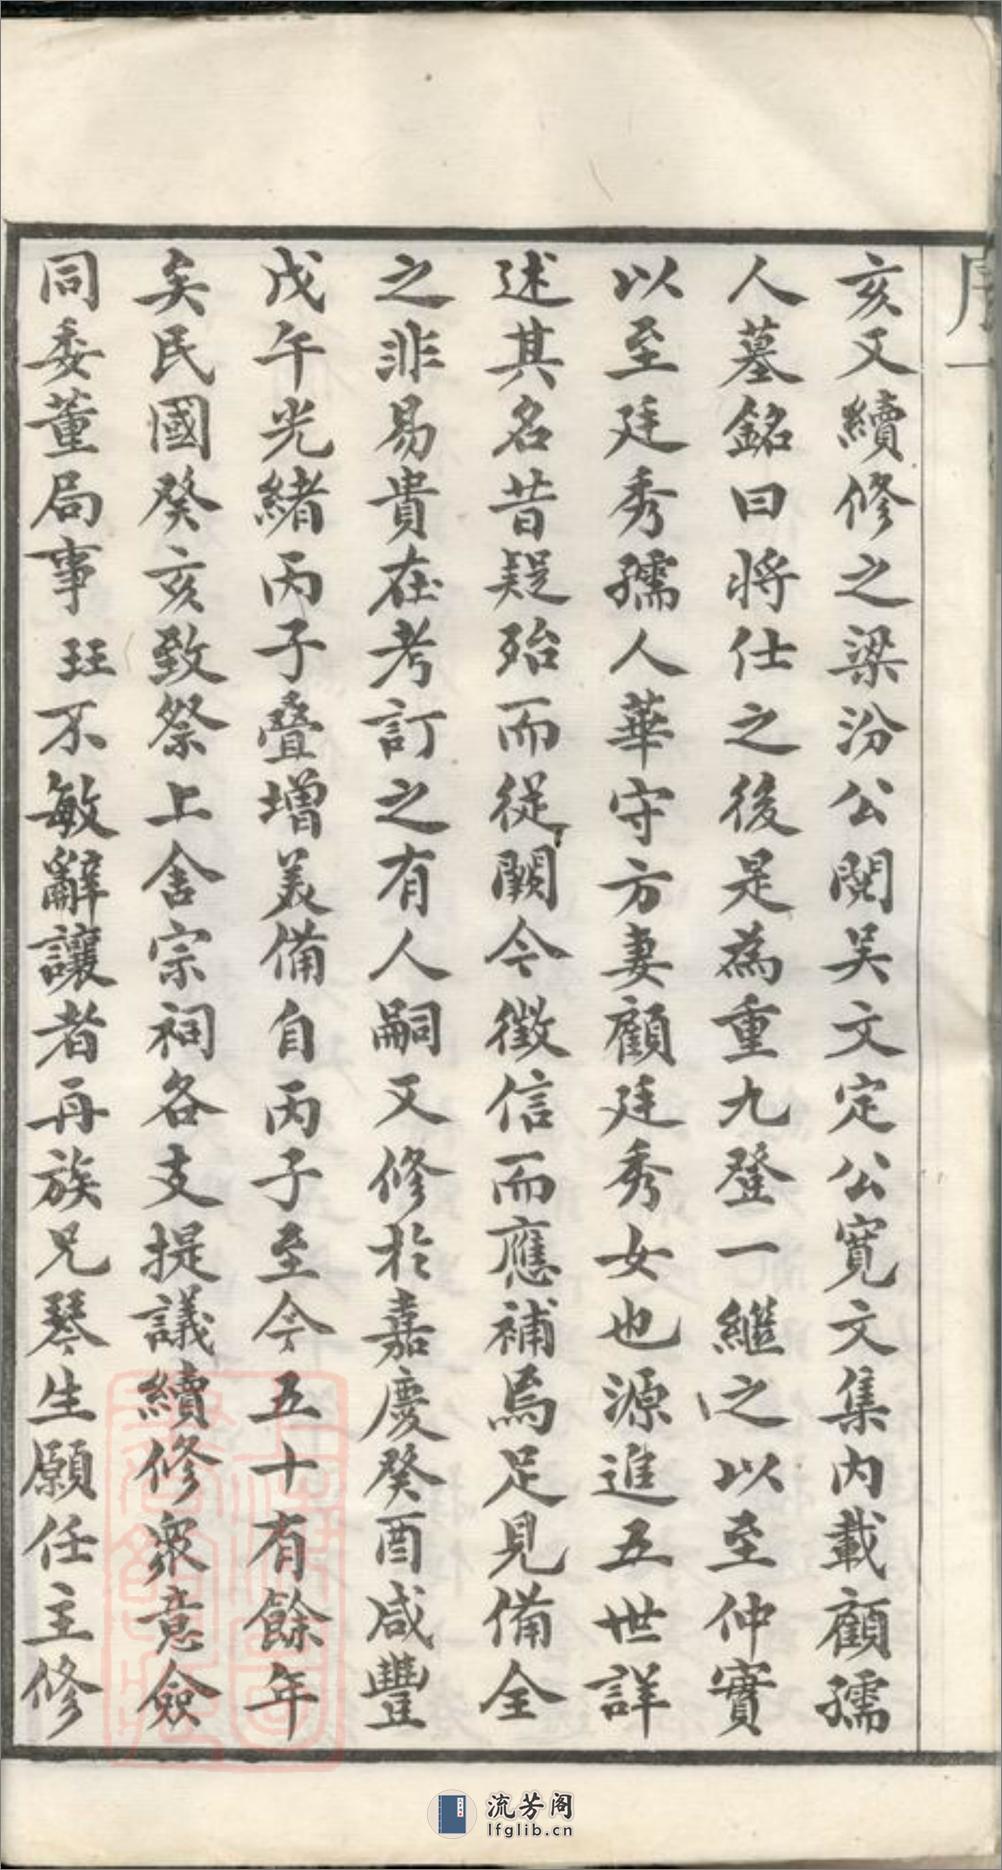 序一
亥又續修之梁汾公閱吳文定公寬文集內載顧孺
人墓銘曰將仕之後是為重九登一繼之以至仲實
以至廷秀孺人華守方妻顧廷秀女也源進五世詳
述其名昔疑殆而從闕今徵信而應補焉足見備全
之非易貴在考訂之有人嗣又修於嘉慶癸酉咸豐
戊午光緒丙子疊增美備自丙子至今五十有餘年
矣民國癸亥致祭上舍宗祠各支提議續修眾意僉
同委董局事玨不敏辭讓者再族兄琴生願任主修
流芳阁
lfglib.cn